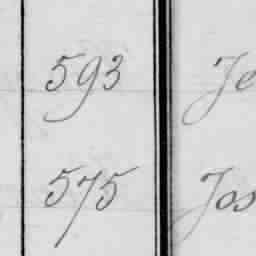 593 Je
575 Jos